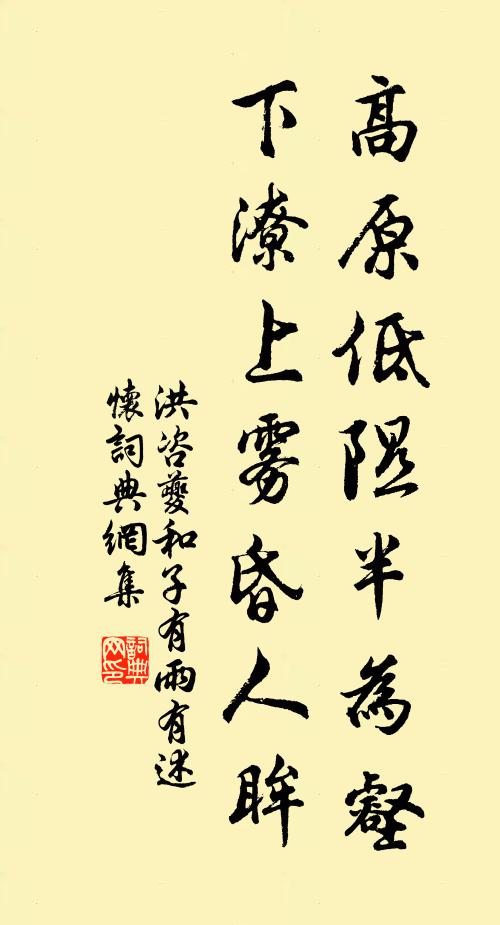 高原低隰半為壑
下潦上霧昏人眸
洪咨夔和子有雨有述
懷詞典網集
詞典
网印